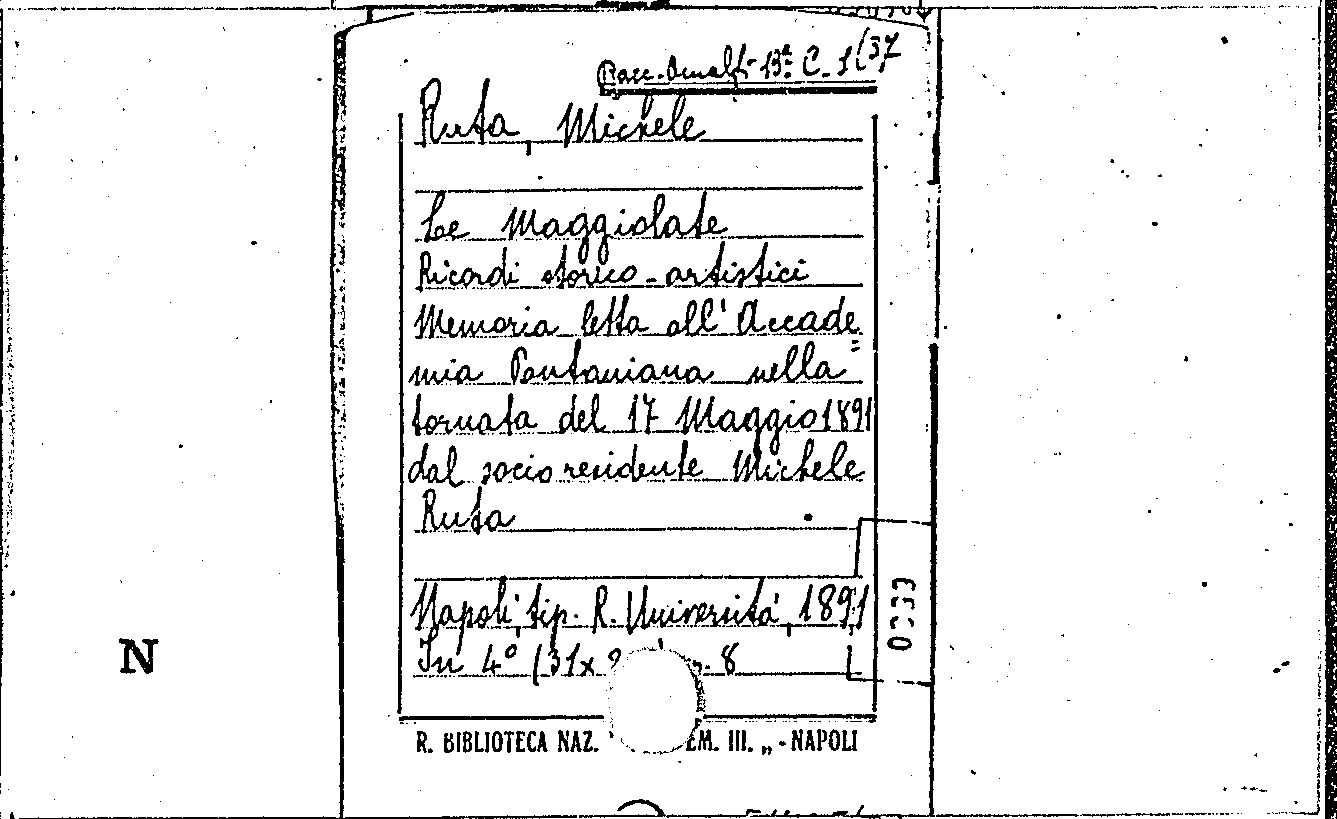 Racc. Amalfi - 13ª C. 1(37
Ruta, Michele
Le Maggiolate
Ricordi storico-artistici
Memoria letta all' Accade=
mia Pontaniana nella
tornata del 17 Maggio 1891
dal socio residente Michele
Ruta
Napoli, tip. R. Università, 1891
In 4º (31x 8
R. BIBLIOTECA NAZ. EM. III. „ - NAPOLI
N